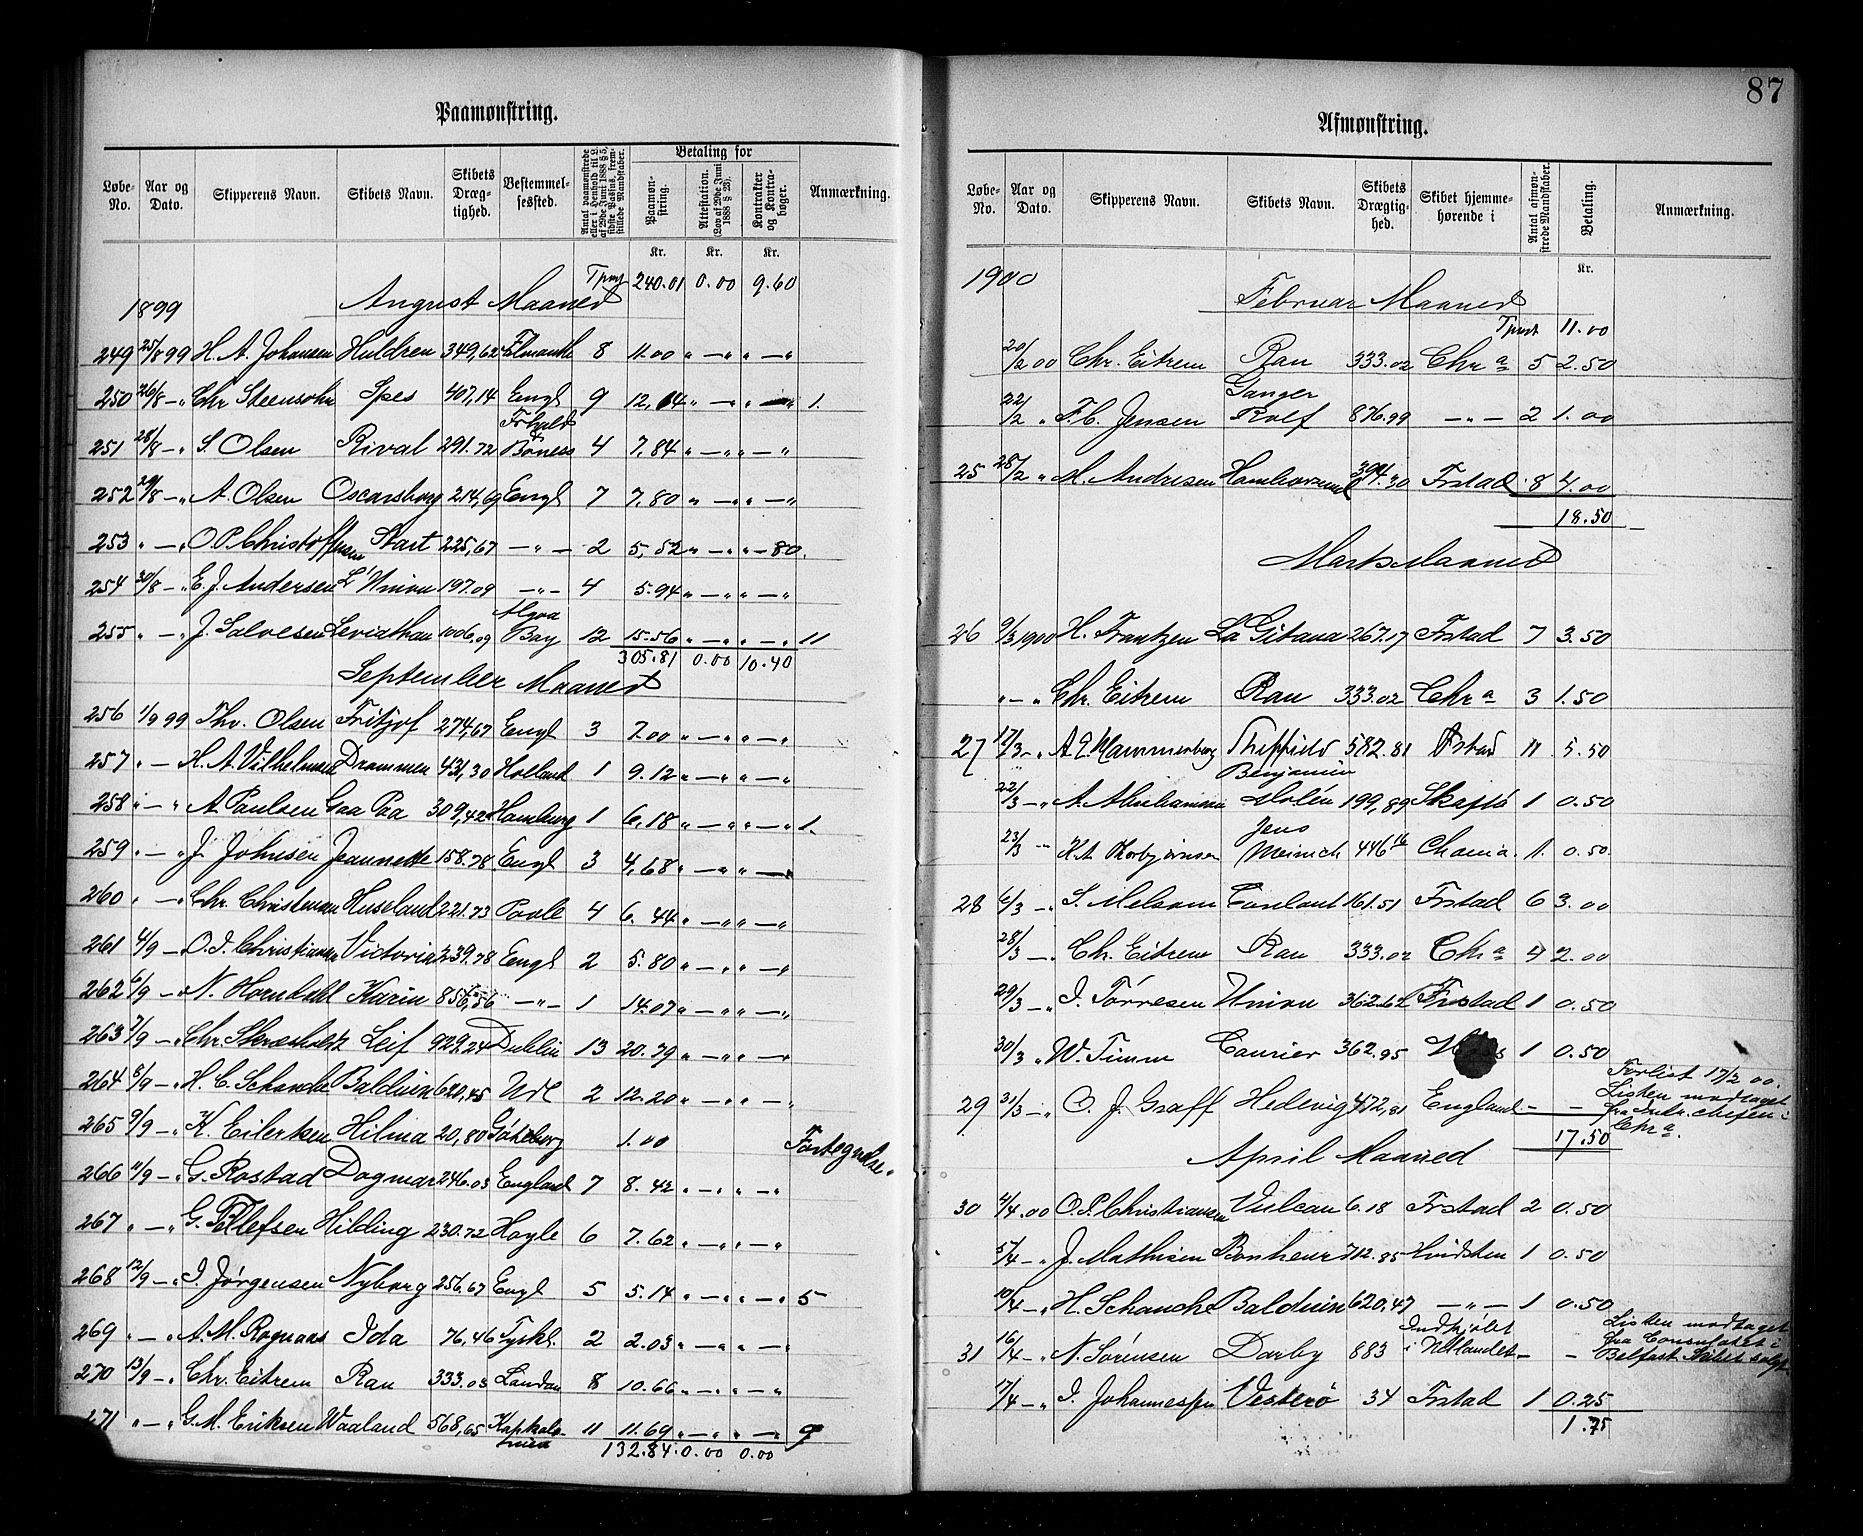 Paamønstring.
Løbe-No. Aar og Dato. Skipperens Navn. Skibets Navn. Skibets Dræg-tighed. Bestemmel-sessted. Antal paamønstrede eller i Henhold til L. af 29de Juni 1888 § 5, sidste Passus, frem-stillede Mandskaber. Betaling for Paamøn-string. Attestation. (Lov af 29de Juni 1888 § 26). Kontrakter og Kontra-bøger. Anmærkning.
Kr. Kr. Kr.
Tprt 240.01 0.00 9.60
1899 August Maaned
249 25/8 99 H. A. Johansen Huldren 349,62 8 11.00 " — " " — "
250 26/8 — " Chr Steensohn Spes 407,14 Engl 9 12,04 " — " " — " 1.
251 28/8 — " S. Olsen Rival 291.72 Frhald & Boness 4 7,84 " — " " — "
252 29/8 — " A. Olsen Oscarsborg 214,69 Engl 7 7.80 " — " " — "
253 " — " O P. Christoffersen Start 225,67 — " — 2 5,52 " — " " — 80.
254 30/8 — " E. J. Andersen L'Union 197.09 — " — 4 5.94 " — " " — "
255 " — " J. Salvesen Leviathan 1006,09 Algoa Bay 12 15.56 " — " " — " 11
305.81 0.00 10.40
September Maaned
256 1/9 99 Thv. Olsen Fritjof 274,67 Engl 3 7.00 " — " " — "
257 " — " H. A. Vilhelmsen Drammen 431,30 Holland 1 9.12 " — " " — "
258 " — " A. Paulsen Gaa Paa 309,42 Hamburg 1 6,18 " — " " — " 1.
259 " — " J. Johnsen Jeannette 158.78 Engl 3 4,68 " — " " — "
260 " — " Chr. Christensen Huseland 221.73 Poole 4 6.44 " — " " — "
261 4/9 — " O. I. Christiansen Victoria 239.78 Engl 2 5.80 " — " " — "
262 6/9 — " N. Horndahl Karin 856,56 — " — 1 14.07 " — " " — "
263 7/9 — " Chr. Leif 929,24 Dublin 13 20.79 " — " " — "
264 8/9 — " H. C. Schanche Balduin 620,45 Udl 2 12.20 " — " " — "
265 9/9 — " K. Eilertsen Hilma 20,80 Göteborg 1.00 Fortegnelse.
266 11/9 — " G. Rostad Dagmar 246.03 England 7 8.42 " — " " — "
267 " — " G. Tollefsen Hilding 230.72 Hayle 6 7.62 " — " " — "
268 12/9 — " I. Jørgensen Nyborg 256,67 Engl 5 5.14 " — " " — " 5
269 " — " A. M. Rognaas Ida 76,46 Tyskl. 2 2.03 " — " " — "
270 13/9 — " Chr. Eitrem Ran 333.03 London 8 10.66 " — " " — "
271 " — " G. M. Eriksen Waaland 568,65 Kapkolo-nien 11 11.69 " — " " — " 9
132.84 0.00 0.00
87
Afmønstring.
Løbe-No. Aar og Dato. Skipperens Navn. Skibets Navn. Skibets Drægtig-hed. Skibet hjemme-hørende i Antal afmøn-strede Mandskaber. Betaling. Anmærkning.
Kr.
1900 Februar Maaned
Tprt 11.00
20/2 00 Chr. Eitrem Ran 333.02 Chr a 5 2.50
22/2 " F. C. Jensen Ganger Rolf 876.99 — " — 2 1.00
25 28/2 " M. Andresen 394.30 Frstad 8 4.00
18.50
Marts Maaned
26 9/3 1900 H. Frantzen La Gitana 267.17 Frstad 7 3.50
" — " Chr. Eitrem Ran 333.02 Chr a 3 1.50
27 17/3 — " A. G. Hammerborg Sheffield 582.81 Frstad 11 5.50
22/3 — " A. Abrahamsen Benjamin Molén 199,89 Skaftö 1 0.50
23/3 — " K. A. Thorbjørnsen Jens Meinich 446 16 Chania 1. 0.50.
28 6/3 — " S. Melsom 161.51 Frstad 6 3.00
28/3 — " Ch. Eitrem Ran 333.02 Chr a 4 2.00
29/3 — " I. Tørresen Union 362.62 Frstad 1 0.50
30/3 " W. Timm Courier 362.95 1 0.50
29 31/3 — " O. J. Graff Hedevig 472,81 England — — Forlist 17/2 00. Listen modtaget fra Indr. chefen i Chr a.
17.50
April Maaned
30 4/4.00 O. P. Christiansen Vulcan 6.18 Frstad 2 0.50
5/4 — " J. Mathisen Bonheur 712.85 Hvidsten 1 0.50
10/4 — " H. Schanche Balduin 620.47 — " — 1 0.50
31 16/4 — " N. Sørensen Darby 883 Indkjøbt i Udlandet — — Listen modtaget fra Consulatet i Belfast. Skibet solgt
17/4 — " I. Johannessen Vesterø 34 Frstad 1 0.25
1.75